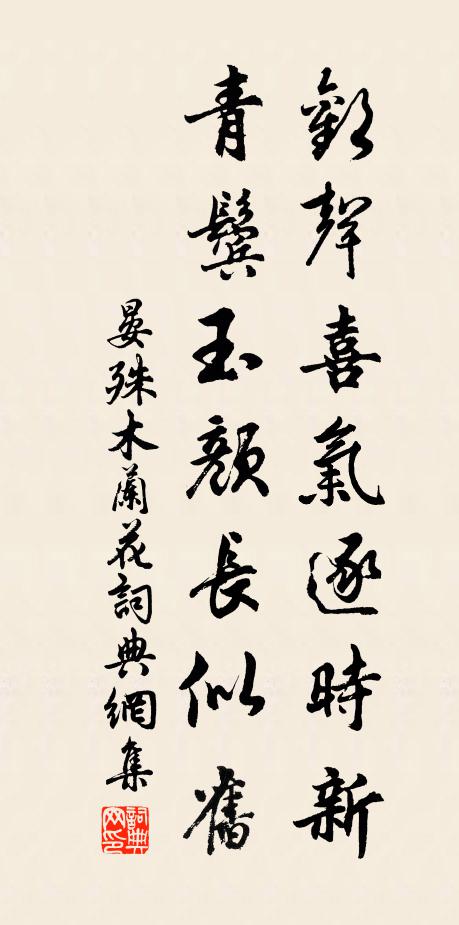 歡聲喜氣逐時新
青鬢玉顏長似舊
晏殊木蘭花詞典網集
詞典网印